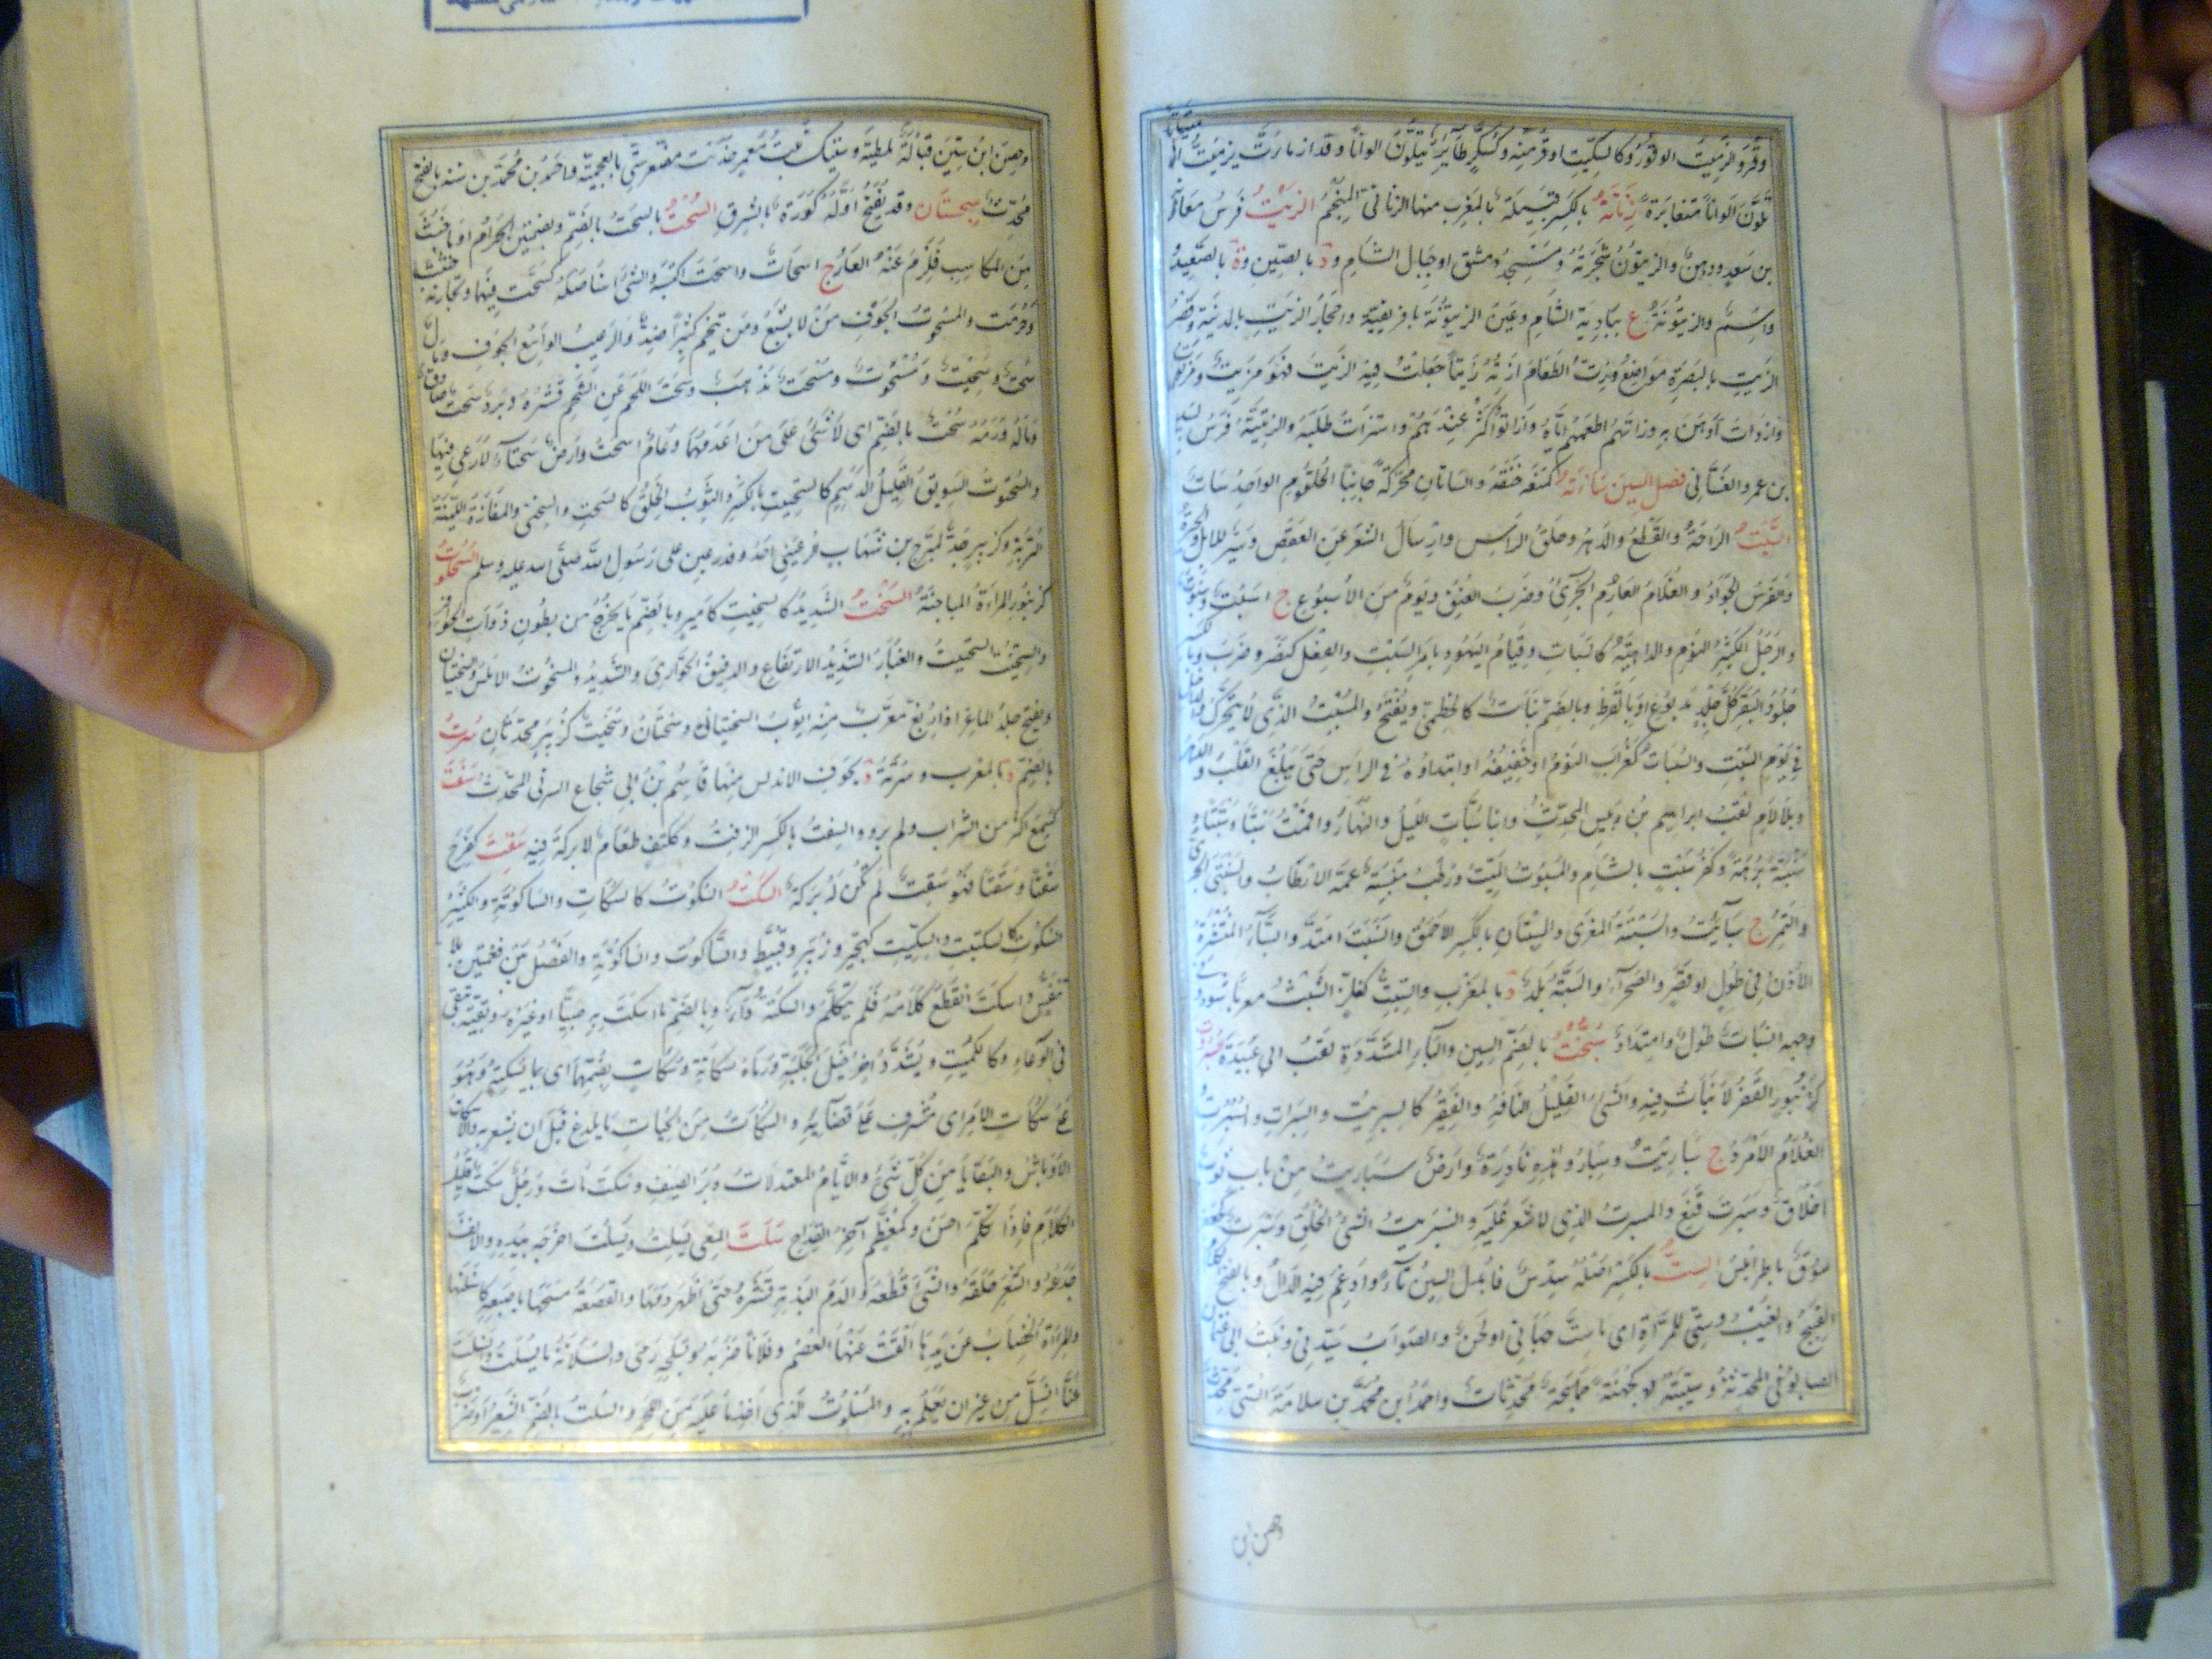 وقروا لزميت الوقور وكالسكيت اوقر منه وكسكر طائر يتلون الوانا وقد ازمأرت يزمئت
تلون الوانا متغايرة زناتة بالكسر قبيلة بالمغرب منها الزناتي المنجم الزيت فرس معاوية
بن سعد ودهن والزيتون شجرته ومسجد دمشق او جبال الشام ود بالصين وة بالصعيد
واسم والزيتونة ع ببادية الشام وعين الزيتونة بافريقية واحجار الزيت بالمدينة وقصر
الزيت بالبصرة مواضع وزت الطعام ازيته زيتا جعلت فيه الزيت فهو مزيت ومزيوت
وازدات ادهن به وزاتهم اطعمهم اياه وازاتوا كثر عندهم واستزات طلبه والزيتية فرس لبيد
بن عمرو الغساني فصل السين سأته كمنعه خنقه والساتان محركة جانبا الحلقوم الواحد سات
السبت الراحة والقطع والدهر وحلق الراس وارسال الشعر عن العقص وسير للابل والحيرة
والفرس الجواد والغلام العارم الجرئ وضرب العنق ويوم من الاسبوع ج اسبت وسبوت
والرجل الكثير النوم والداهية كالسبات وقيام اليهود بامر السبت والفعل كنصر وضرب وبالكسر
جلود البقر كل جلد مدبوغ او بالقرظ وبالضم نبات كالخطمى ويفتح والمسبت الذى لا يتحرك والداخل
في يوم السبت والسبات كغراب النوم او خفيفه او ابتداؤه فى الراس حتى يبلغ القلب والدهر
وبلا لام لقب ابراهيم بن دبيس المحدث وابنا سبات الليل والنهار واقمت سبتا وسبتة و
سنبتة برهة وكفر سبت بالشام والمسبوت الميت ورطب منسبتة عمه الارطاب والسبنتى الجرى
والنمر ج سبانيت والسبنتة المعزى والسبتان بالكسر الاحمق وانسبت امتد والسبتاء المنتشرة
الاذن في طول او قصر والصحراء والسبتة بلد د بالمغرب والسبت كفلز الشبث معربا شوذ و
وجهه انسبات طول وامتداد سبخت بالضم السين والباء المشددة لقب ابي عبيدة السبروت
كزنبور القفر لا نبات فيه والشئ القليل التافه والفقير كالسبريت والسبرات والسبرت
الغلام الامرد ج سباريت وسبار وهذه نادرة وارض سباريت من باب ثوب
اخلاق وسبرت قنع والمسبرت الذى لا شعر عليه والسبريت الشئ الخلق وسبرت كجعفر
سوق باطرابلس الست بالكسر اصله سدس فابدل السين تاء وادغم فيه الدال وبالفتح الكلام
القبيح والعيب وستى للمرأة اى يا ست جهاتى او لحن والصواب سيدتى وست بنت ابى عثمان
الصابونى المحدثة وستيتة كجهينة جماعة محدثات واحمد بن محمد بن سلامة الستيتى محدث
وحصن ابن
وحصن ابن ستين قبالة ملطية
محدث سجستان وقد يفتح اوله كورة بالشرق السحت بالسحت بالضم وبضمتين الحرام او ما خبث
من المكاسب فلزم عنه العار ج اسحات واسحت اكتسبه والشئ استاصله كسحت فيهما وتجارته خبثت
وحرمت والمسحوت الجوف من لا يشبع ومن يتخم كثيرا ضد والرغيب الواسع الجوف ومال
سحت وسحيت ومسحوت ومسحت مذهب وسحت اللحم عن الشحم قشره وبرد سحت صادق
وماله ودمه سحت بالضم اى لا شئ على من اعدمهما وعام اسحت وارض سحتاء لا رعى فيها
والسحتوت السويق القليل الدسم كالسحتيت بالكسر والثوب الخلق كالسحت والسحتى والمفازة اللينة
التربة وكزبير جد لمبرح بن شهاب الرعينى احد وفد رعين على رسول الله صلى الله عليه وسلم السحلوت
كزنبور المرأة الماجنة السخت الشديد كالسخيت كامير وبالضم ما يخرج من بطون ذوات الحوافر
والسختيت السحتيت والغبار الشديد الارتفاع والدقيق الحوارى والشديد والمسخوت الاملس والسختيان
ويفتح جلد الماعز اذا دبغ معرب منه ايوب السختيانى وسختان وسخيت كزبير محدثان سرت
بالضم د بالمغرب وسرتة د بجوف الاندلس منها قاسم بن ابى شجاع السرتى المحدث سفت
كسمع اكثر من الشراب ولم يرو والسفت بالكسر الزفت وككتف طعام لا بركة فيه سقت كفرح
سقتا وسقتا فهو سقت لم تكن له بركة السكت السكوت كالسكات والساكوتة والكثير
السكوت كالسكتيت والسكيت كسجير وزبير وقبيط والساكوت والساكوتة والفصل بين نغمتين بلا
تنفس واسكت انقطع كلامه فلم يتكلم والسكتة داء وبالضم ما اسكت به صبيا او غيره وبقية تبقى
فى الوعاء وكالكميت ويشدد اخر خيل الحلبة ورماه بسكاتة وسكات بضمهما اى بما يسكته وهو
على سكات الامر اى مشرف على قضائه والسكات من الحيات ما يلدغ قبل ان يشعر به والاسكات
الاوباش والبقايا من كل شئ والايام المعتدلات دبر الصيف وسكت مات ورجل سكت قليل
الكلام فاذا تكلم احسن وكمعظم آخر القداح سلت المعى يسلت ويسلت اخرجه بيده والانف
جدعه والشعر حلقه والشئ قطعه والدم البدنة قشره حتى اظهر دمها والقصعة مسحها باصبعه كاستلتها
والمرأة الخضاب عن يدها القت عنها العصم وفلانا ضربه وبسلحه رمى والسلاتة ما يسلت وانسلت
عنا انسل من غير ان يعلم به والمسلوت الذى اخذ ما عليه من اللحم والسلت بالضم الشعير او ضرب